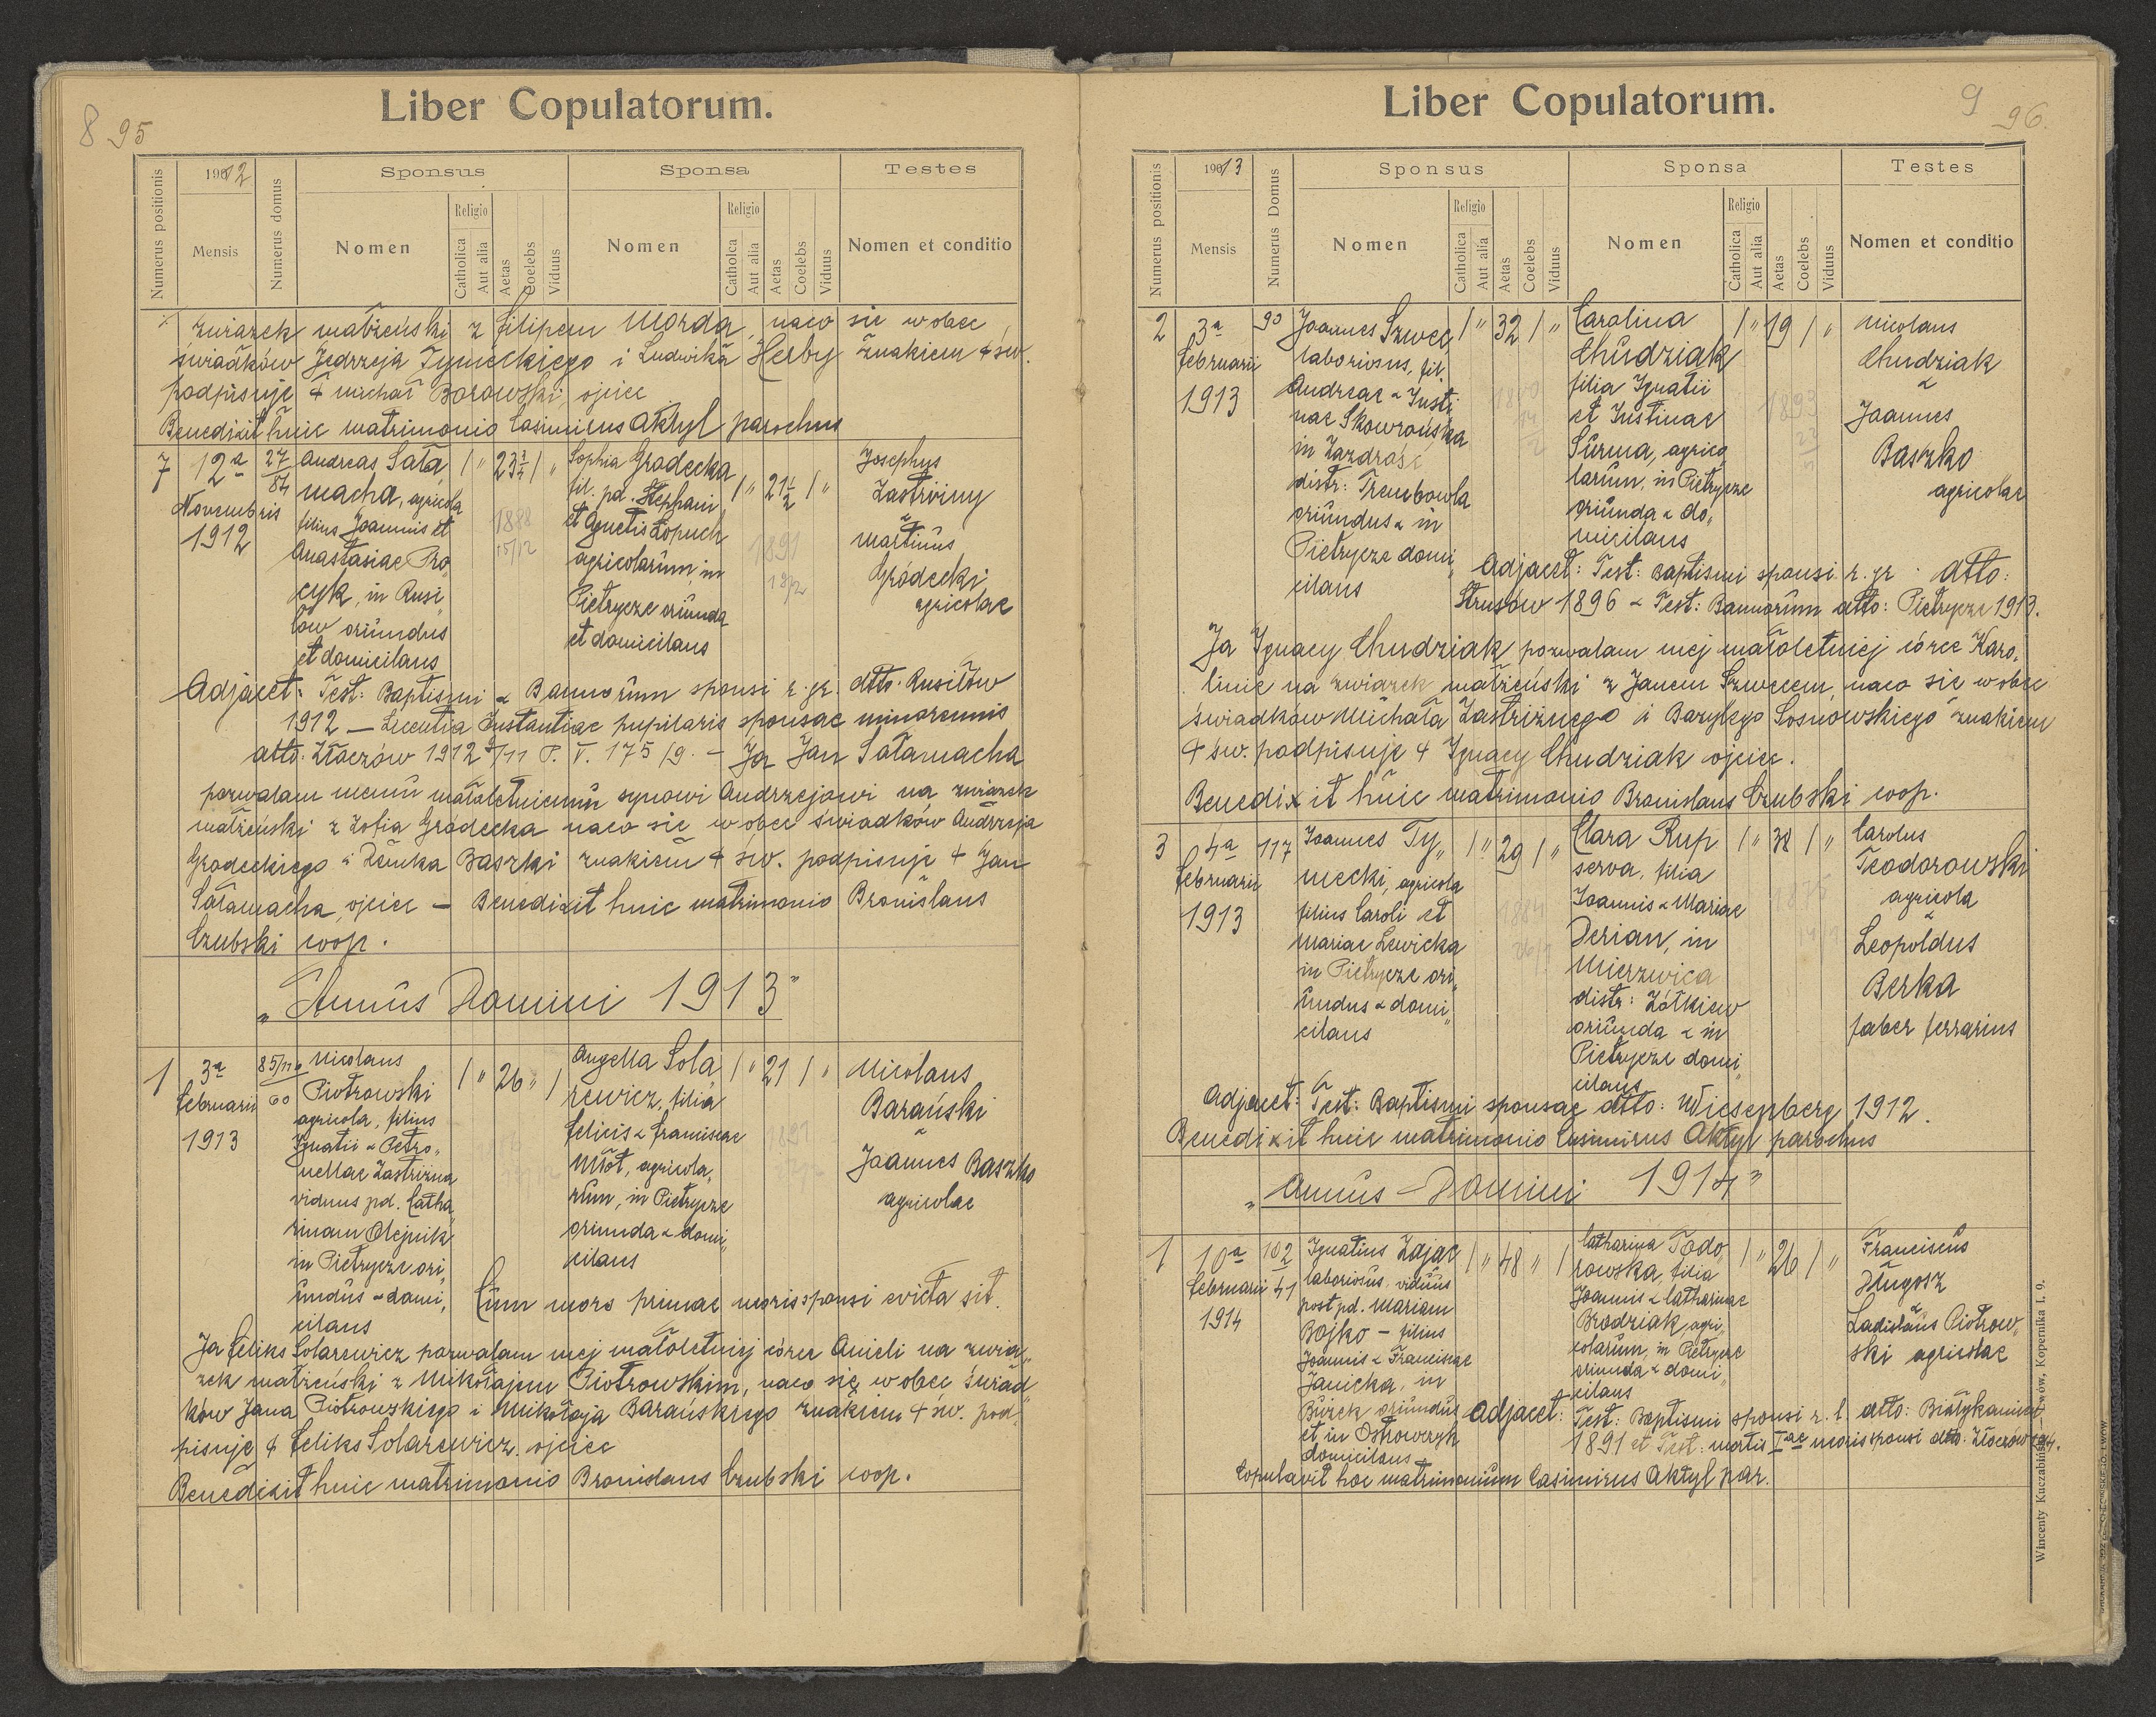 8 95
Liber Copulatorum.
Numerus positionis
1912
Mensis
Numerus domus
Sponsus
Nomen
Religio
Catholica
Aut alia
Aetas
Coelebs
Viduus
Sponsa
Nomen
Religio
Catholca
Aut alia
Aetas
Coelebs
Viduus
Testes
Nomen et conditio
związek małżeński z Filipem Morda, naco się wobec
świadków Jędrzeja Tymeckiego i Ludwika Herby znakiem + św.
podpisuję + Michał Borowski, ojciec
Benedixit huic matrimonio Casimirus Aktyl parochus
7
12a
Novembris
1912
27
84
Andreas Sała„
macha, agricola
filius Joannis et
Anastasiae Pro„
cyk, in Rusi„
łów oriundus
et domicilans
| „ 23 3/4 | „
1888
15/12
Sophia Gródecka
fil. pd. Stephani
et Agnetis Łopuch
agricolarum, in
Pietrycze oriunda
et domicilans
| „ 21 1/2 | „
1891
Josephus
Zastrizny
&
Martinus
Gródecki
agricolae
Adjacet: Test: Baptismi & Bannorum sponsi r. gr. dtto. Rusiłów
1912 — Licentia Instantiae pupilaris sponsae minorennis
dtto. Złoczów 1912 9/11 P. V. 175/9. – Ja Jan Sałamacha
pozwalam memu małoletniemu synowi Andrzejowi na związek
małżeński z Zofią Gródecką naco się wobec świadków Andrzeja
Gródeckiego i Dźmka Baszki znakiem + św. podpisuję + Jan
Sałamacha, ojciec – Benedixit huic matrimonio Bronislaus
Czubski coop.
„Annus Domini 1913”
1
3a
Februarii
1913
85/110
60
Nicolaus
Piotrowski
agricola, filius
Ignatii & Petro„
nellae Zastrizna
viduus pd. Catha„
rinam Olejnik
in Pietrycze ori„
undus & domi„
cilans
| „ 26 „ |
Angella Sola„
rewicz, filia
Felicis & Franciscae
Młot, agricola„
rum, in Pietrycze
oriunda & domi„
cilans
| „ 21 | „
1891
Nicolaus
Barański
&
Joannes Baszko
agricolae
Cum mors primae uxoris sponsi evicta sit.
Ja Feliks Solarewicz pozwalam mej małoletniej córce Anieli na zwią„
zek małżeński z Mikołajem Piotrowskim, naco się wobec świad„
ków Jana Piotrowskiego i Mikołaja Barańskiego znakiem + św. pod„
pisuję + Feliks Solarewicz, ojciec
Benedixit huic matrimonio Bronislaus Czubski coop.
9 96.
Liber Copulatorum.
Numerus positionis
1913
Mensis
Numerus Domus
Sponsus
Nomen
Religio
Catholica
Aut alia
Aetas
Coelebs
Viduus
Sponsa
Nomen
Religio
Catholica
Aut alia
Aetas
Coelebs
Viduus
Testes
Nomen et conditio
2
3a
Februarii
1913
90
Joannes Szwec,
laboriosus, fil.
Andreae & Justi„
nae Skowrońska
in Zazdrość
distr: Trembowla
oriundus & in
Pietrycze domi„
cilans
| „ 32 | „
Carolina
Chudziak
filia Ignatii
et Justinae
Surma, agrico„
larum, in Pietrycze
oriunda & do„
micilans
| „ 19 | „
1893
Nicolaus
Chudziak
&
Joannes
Baszko
agricolae
Adjacet: Test: Baptismi sponsi r. gr. dtto:
Strusów 1896 & Test: Bannorum dtto: Pietrycze 1913.
Ja Ignacy Chudziak pozwalam mej małoletniej córce Karo„
linie na związek małżeński z Janem Szwecem, naco się wobec
świadków Michała Zastriżnego i Bazylego Sosnowskiego znakiem
+ św. podpisuję + Ignacy Chudziak ojciec.
Benedixit huic matrimonio Bronislaus Czubski coop.
3
4a
Februarii
1913
117
Joannes Ty„
mecki, agricola
filius Caroli et
Mariae Lewicka
in Pietrycze ori„
undus & domi„
cilans
| „ 29 | „
Clara Rup
serva, filia
Joannis & Mariae
Derian, in
Mierzwica
distr: Żółkiew
oriunda & in
Pietrycze domi„
cilans
| „ 38 | „
Carolus
Teodorowski
agricola
&
Leopoldus
Berka
faber ferrarius
Adjacet: Test: Baptismi sponsae dtto: Wiesenberg 1912.
Benedixit huic matrimonio Casimirus Aktyl parochus
„Annus Domini 1914”
1
10a
Februarii
1914
102
41
Ignatius Zając
laboriosus, viduus
post pd. Mariam
Bojko – filius
Joannis & Franciscae
Janicka, in
Burek oriundus
et in Ostrowczyk
domicilans
| „ 48 „ |
Catharina Todo„
rowska, filia
Joannis & Catharinae
Brodziak agri„
colarum, in Pietrycze
oriunda & domi„
cilans
| „ 26 | „
Franciscus
Długosz
&
Ladislaus Piotrow„
ski agricolae
Adjacet: Test: Baptismi sponsi r. l. dtto: Białykamień
1891 et Test: mortis Iae uxoris sponsi dtto. Złoczów 1914.
Copulavit hoc matrimonium Casimirus Aktyl par.
Wincenty Kuczabiński, Lwów, Kopernika l. 9.